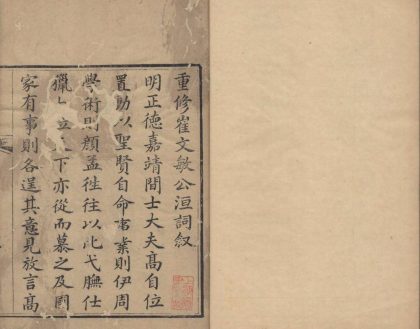 重修崔文敏公洹詞叙
明正德嘉靖間士大夫高自位
置助以聖賢自命事業則伊周
學術則顏孟徃徃以此弋膴仕
獵 立 下亦從而慕之及國
家有事則各逞其意見放言高